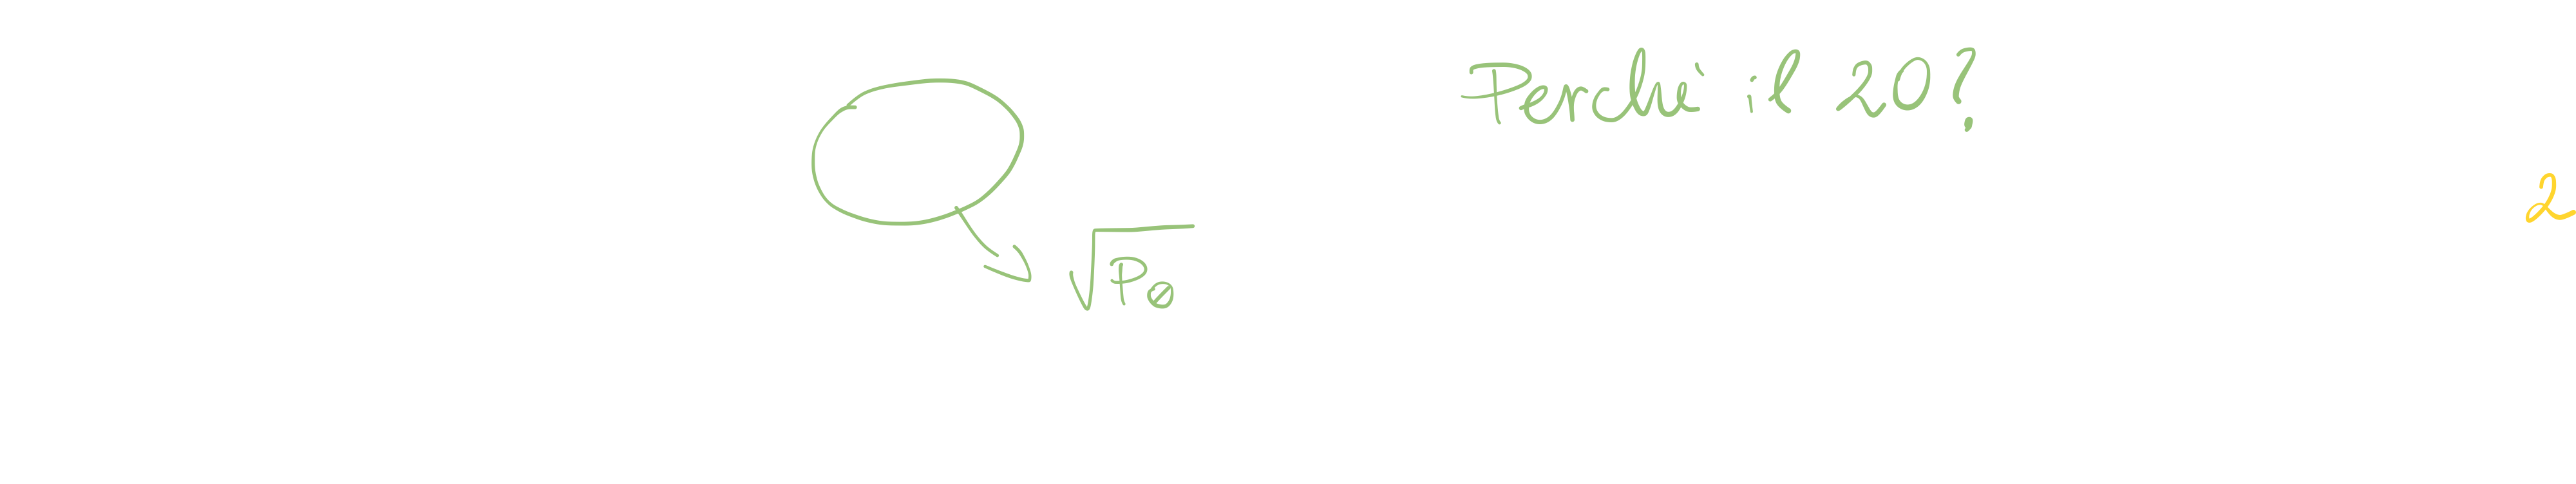 Perchè il 20?
2
√P∅